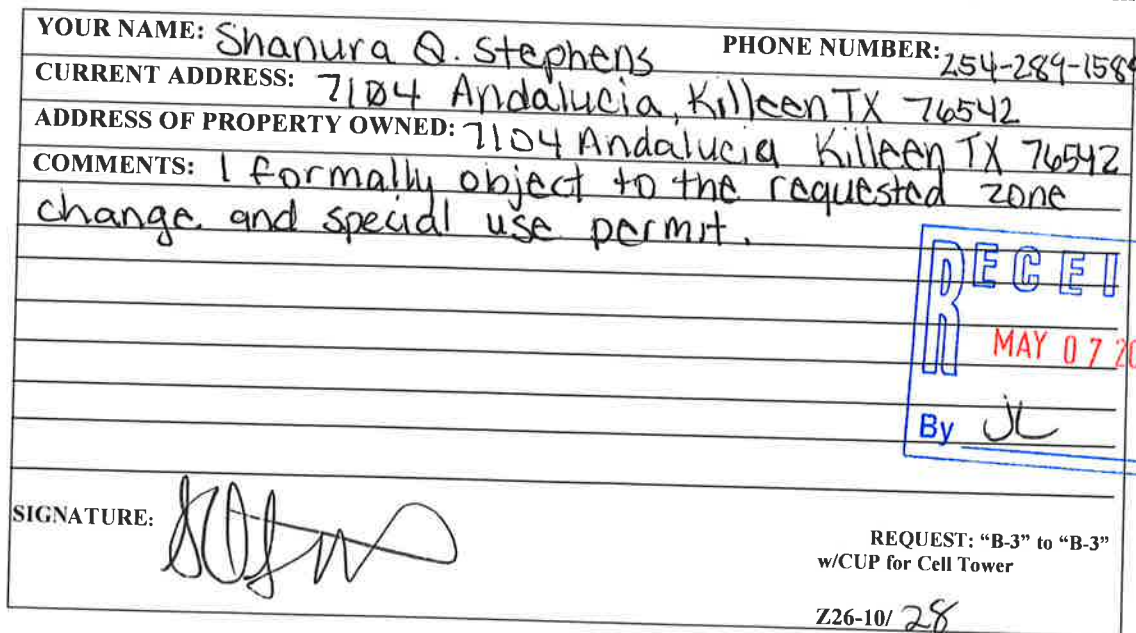 YOUR NAME: Shanura Q. Stephens PHONE NUMBER: 254-289-1589
CURRENT ADDRESS: 7104 Andalucia, Killeen TX 76542
ADDRESS OF PROPERTY OWNED: 7104 Andalucia Killeen TX 76542
COMMENTS: I formally object to the requested zone
change and special use permit.
RECEI
MAY 07 20
By JL
SIGNATURE:
REQUEST: "B-3" to "B-3"
w/CUP for Cell Tower
Z26-10/ 28